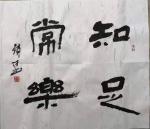 知足
常樂